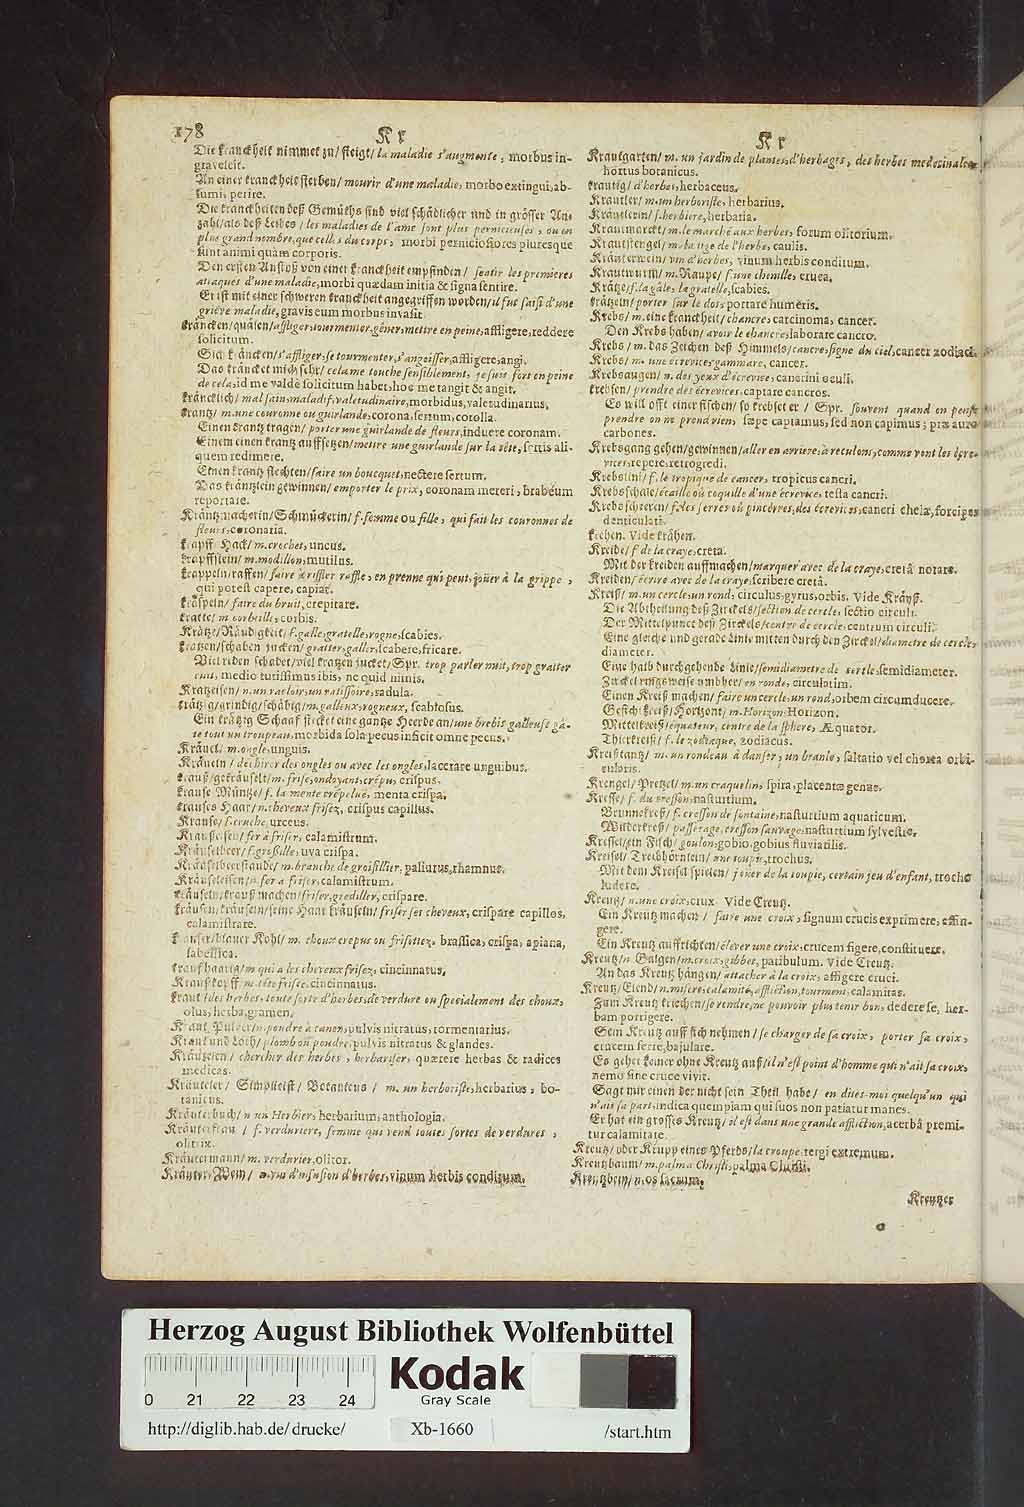 178
Kr
Kr
Die kranckheit nimmet zu/ steigt/ la maladie s'augmente, morbus in-
gravescit.
An einer kranckheit sterben/ mourir d'une maladie, morbo extingui, ab-
sumi, perire.
Die kranckheiten deß Gemüths sind viel schädlicher und in grösser An-
zahl/ als deß Leibes/ les maladies de l'ame sont plus pernicieuses, ou en
plus grand nombre, que celles du corps, morbi perniciosiores pluresque
sunt animi quàm corporis.
Den ersten Anstoß von einer kranckheit empfinden/ sentir les premieres
attaques d'une maladie, morbi quædam initia & signa sentire.
Er ist mit einer schweren kranckheit angegriffen worden/ il fut saisi d'une
griéve maladie, gravis eum morbus invasit.
kräncken/ quälen/ affliger, tourmenter, gêner, mettre en peine, affligere, reddere
solicitum.
Sich kräncken/ s'affliger, se tourmenter, s'angoisser, affligere, angi.
Das kräncket mich sehr/ cela me touche sensiblement, je suis fort en peine
de cela, id me valdè solicitum habet, hoc me tangit & angit.
kräncklich/ mal sain, maladif, valetudinaire, morbidus, valetudinarius.
krantz/ m. une couronne ou guirlande, corona, sertum, corolla.
Einen krantz tragen/ porter une guirlande de fleurs, induere coronam.
Einem einen krantz auffsetzen/ mettre une guirlande sur la tête, sertis ali-
quem redimere.
Einen krantz flechten/ faire un boucquet, nectere sertum.
Das kräntzlein gewinnen/ emporter le prix, coronam mereri, brabéum
reportare.
Kräntzmacherin/ Schmückerin/ f. femme ou fille, qui fait les couronnes de
fleurs, coronaria.
krapff/ Hack/ m. crochet, uncus.
krapffstein/ m. modillon, mutilus.
krappeln/ raffen/ faire à riffler raffle, en prenne qui peut, joüer à la grippe,
qui potest capere, capiat.
kraspeln/ faire du bruit, crepitare.
kratte/ m. corbeille, corbis.
Krätze/ Räudigkeit/ f. galle, gratelle, rogne, scabies.
kratzen/ schaben jucken/ gratter, galler, scabere, fricare.
Viel reden schadet/ viel kratzen jucket/ Spr. trop parler nuit, trop gratter
cuit, medio tutissimus ibis, ne quid nimis.
Kratzeisen/ n. un racloir, un ratissoire, radula.
krätzig/ grindig/ schäbig/ m. galleux, rogneux, scabiosus.
Ein krätzig Schaaf stecket eine gantze Heerde an/ une brebis galleuse gâ-
te tout un troupeau, morbida sola pecus inficit omne pecus.
Kräuel/ m. ongle, unguis.
Kräueln/ dechirer des ongles ou avec les ongles, lacerare unguibus.
krauß/ gekräuselt/ m. frise, ondoyant, crêpu, crispus.
krause Müntze/ f. la mente crêpelue, menta crispa.
krauses Haar/ n. cheveux frisez, crispus capillus.
Krause/ f. cruche, urceus.
Kraußeisen/ fer à friser, calamistrum.
Kräuselbeer/ f. groseille, uva crispa.
Kräuselbeerstaude/ m. branche de groisillier, paliurus, rhamnus.
Kräuseleisen/ n. fer à friser, calamistrum.
kräuseln/ krauß machen/ friser, gredillier, crispare.
kräusen/ kräuseln/ seine Haar kräuseln/ friser ses cheveux, crispare capillos,
calamistrare.
krauser/ blauer Kohl/ m. choux crêpus ou frisottez, brassica, crispa, apiana,
sabellica.
kraußhaarig/ m. qui a les cheveux frisez, cincinnatus.
Kraußkopff/ m. tête frisée, cincinnatus.
kraut/ des herbes, toute sorte d'herbes, de verdure ou specialement des choux,
olus, herba, gramen.
Kraut/ Pulver/ n. poudre à canon, pulvis nitratus, tormentarius.
Kraut und Loth/ plomb ou poudre, pulvis nitratus & glandes.
Kräutzlen/ chercher des herbes, herbariser, quærere herbas & radices
medicas.
Kräuteler/ Simplicist/ Botanicus/ m. un herboriste, herbarius, bo-
tanicus.
Kräuterbuch/ n. un Herbier, herbarium, anthologia.
Kräuterfrau/ f. verduriere, femme qui vend toutes sortes de verdures,
olitrix.
Kräutermann/ m. verdurier, olitor.
Kräuter-Wein/ m. vin d'infusion d'herbes, vinum herbis conditum.
Krautgarten/ m. un jardin de plantes, d'herbages, des herbes medicinales
hortus botanicus.
krautig/ d'herbes, herbaceus.
Krautler/ m. un herboriste, herbarius.
Kräutlerin/ f. herbiere, herbaria.
Krautmarckt/ m. le marché aux herbes, forum olitorium.
Krautstengel/ m. la tige de l'herbe, caulis.
Kräuterwein/ vin d'herbes, vinum herbis conditum.
Krautwurm/ m. Raupe/ f. une chenille, eruca.
Krätze/ f. la gâle, la gratelle, scabies.
krätzeln/ porter sur le dos, portare humeris.
Krebs/ m. eine kranckheit/ chancre, carcinoma, cancer.
Den Krebs haben/ avoir le chancre, laborare cancro.
Krebs/ m. das Zeichen deß Himmels/ cancre, signe du ciel, cancer zodiaci.
Krebs/ m. une écrevice, gammare, cancer.
Krebsaugen/ n. des yeux d'écrevice, cancrini oculi.
krebsen/ prendre des écrevices, captare cancros.
Es will offt einer fischen/ so krebset er/ Spr. souvent quand on pense
prendre on ne prend rien, sæpe captamus, sed non capimus; præ auro
carbones.
Krebsgang gehen/ gewinnen/ aller en arriere, à reculons, comme vont les écre-
vices, repere, retrogredi.
Krebslini/ f. le tropique de cancer, tropicus cancri.
Krebsschale/ écaille où coquille d'une écrevice, testa cancri.
Krebsscheren/ f. les serres où pincettes, des écrevices, cancri chelæ, forcipes
denticulati.
krehen. Vide krähen.
Kreide/ f. de la craye, creta.
Mit der kreiden auffmachen/ marquer avec de la craye, cretâ notare.
Kreiden/ écrire avec de la craye, scribere cretâ.
Kreiß/ m. un cercle, un rond, circulus, gyrus, orbis. Vide Kräyß.
Die Abtheilung deß Zirckels/ section de cercle, sectio circuli.
Der Mittelpunct deß Zirckels/ centre de cercle, centrum circuli.
Eine gleiche und gerade Lini mitten durch den Zirckel/ diametre de cercle,
diameter.
Eine halb durchgehende Linie/ semidiametre de cercle, semidiameter.
Zirckel ringsweise umbher/ en ronde, circulatim.
Einen Kreiß machen/ faire un cercle, un rond, orbem circumducere.
Gesichtkreiß/ Horizont/ m. Horizon, Horizon.
Mittelkreiß/ équateur, centre de la sphere, Æquator.
Thierkreiß/ f. le zodiaque, zodiacus.
Kreißtantz/ m. un rondeau à danser, un branle, saltatio vel chorea orbi-
cularis.
Krengel/ Pretzel/ m. un craquelin, spira, placentæ genus.
Kresse/ f. du cresson, nasturtium.
Brunnekreß/ f. cresson de fontaine, nasturtium aquaticum.
Wilderkreß/ passerage, cresson sauvage, nasturtium sylvestre.
Kressel/ ein Fisch/ goulon, gobio, gobius fluviatilis.
Kreisel/ Treibhörnlein/ une toupie, trochus.
Mit dem Kreisel spielen/ joüer de la toupie, certain jeu d'enfant, trocho
ludere.
Kreutz/ n. une croix, crux. Vide Creutz.
Ein Kreutz machen/ faire une croix, signum crucis exprimere, effin-
gere.
Ein Kreutz auffrichten/ élever une croix, crucem figere, constituere.
Kreutz/ n. Galgen/ m. croix, gibbet, patibulum. Vide Creutz.
An das Kreutz hängen/ attacher à la croix, affigere cruci.
Kreutz/ Elend/ n. misere, calamité, affliction, tourment, calamitas.
Zum Kreutz kriechen/ se rendre, ne pouvoir plus tenir bon, dedere se, her-
bam porrigere.
Sein Kreutz auff sich nehmen/ se charger de sa croix, porter sa croix,
crucem ferre, bajulare.
Es gehet keiner ohne Kreutz auß/ il n'est point d'homme qui n'ait sa croix,
nemo sine cruce vivit.
Sagt mir einen der nicht sein Theil habe/ en dites-moi quelqu'un qui
n'ait sa part, indica quempiam qui suos non patiatur manes.
Er hat ein grosses Kreutz/ il est dans une grande affliction, acerbâ premi-
tur calamitate.
Kreutz/ oder Krupp eines Pferds/ la croupe, tergi extremum.
Kreutzbaum/ m. palma Christi, palma Christi.
Kreutzbein/ n. os sacrum.
Kreutzer
Herzog August Bibliothek Wolfenbüttel
0 21 22 23 24
Kodak
Gray Scale
http://diglib.hab.de/drucke/ Xb-1660 /start.htm